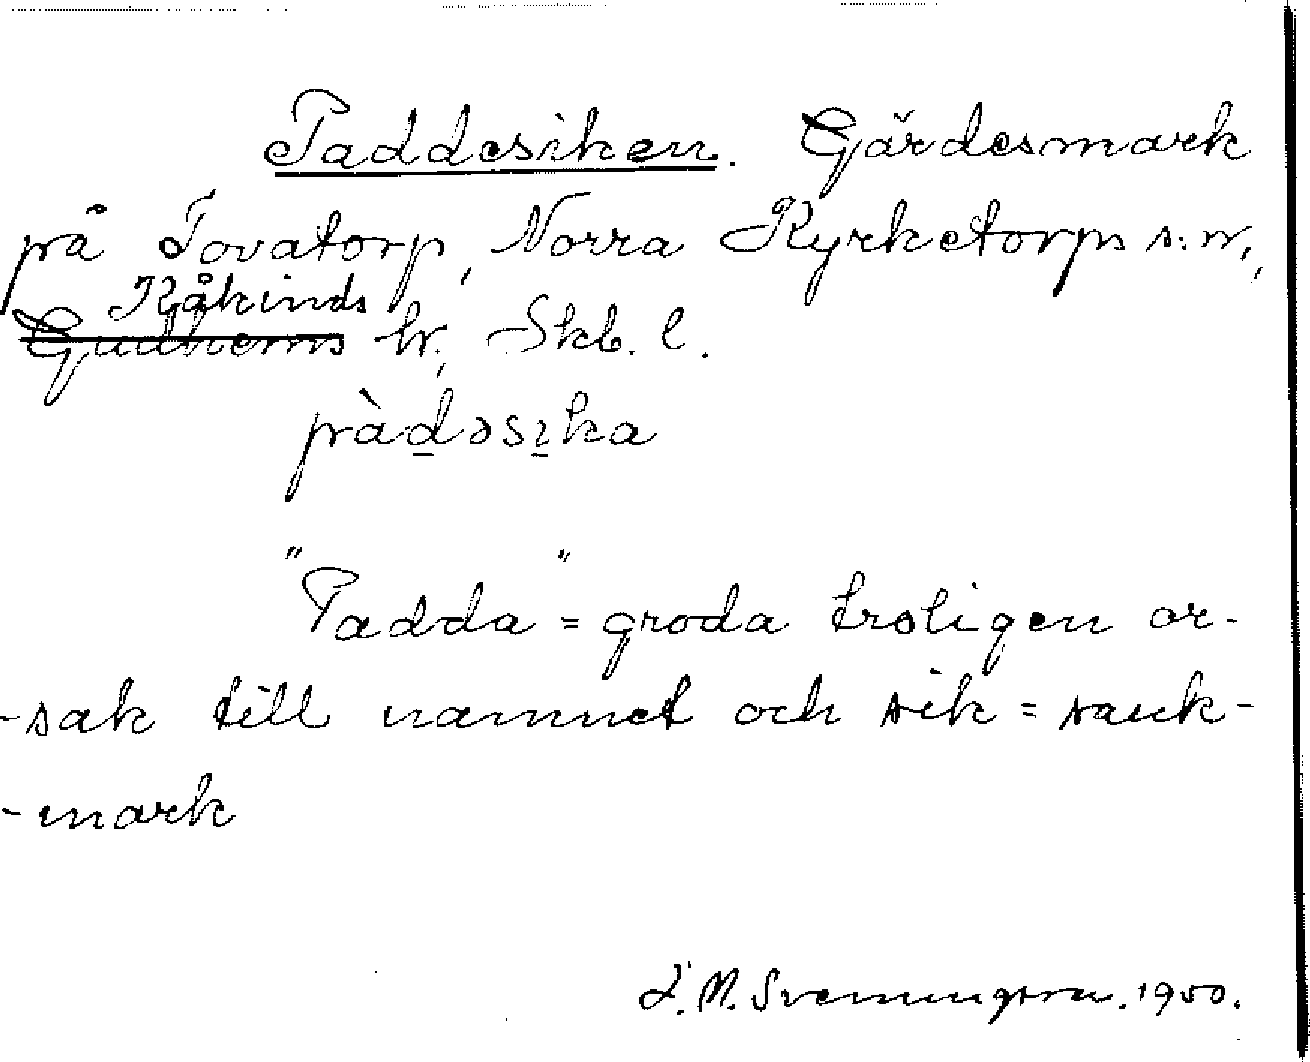 Paddesiken. Gärdesmark
på Tovatorp, Norra Kyrketorps s:n,
Kåkinds
Gudhems hr, Skb. l.
pàdəsıka
"Padda" = groda troligen or-
-sak till namnet och sik = sank-
-mark
J. N. Svenungson. 1950.